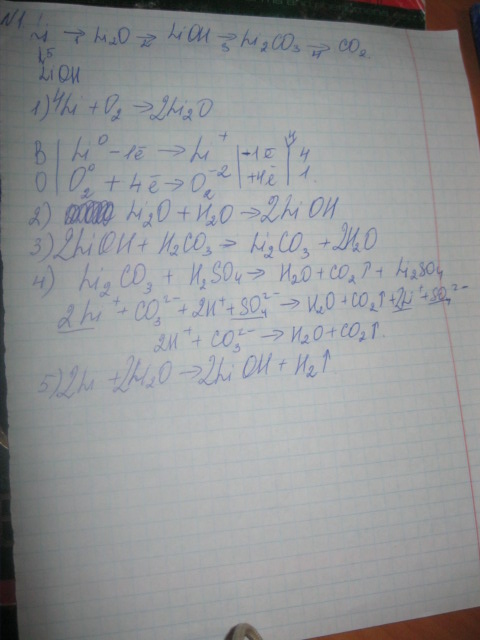 N1.
Li →1 Li₂O →2 LiOH →3 Li₂CO₃ →4 CO₂.
↓5
LiOH
1) 4Li + O₂ → 2Li₂O
В | Li⁰ - 1ē → Li⁺ | -1ē | 4 | 4
О | O₂⁰ + 4ē → O₂⁻² | +4ē | 1.
2) Li₂O + H₂O → 2LiOH
3) 2LiOH + H₂CO₃ → Li₂CO₃ + 2H₂O
4) Li₂CO₃ + H₂SO₄ → H₂O + CO₂↑ + Li₂SO₄
2Li⁺ + CO₃²⁻ + 2H⁺ + SO₄²⁻ → H₂O + CO₂↑ + 2Li⁺ + SO₄²⁻
2H⁺ + CO₃²⁻ → H₂O + CO₂↑.
5) 2Li + 2H₂O → 2LiOH + H₂↑